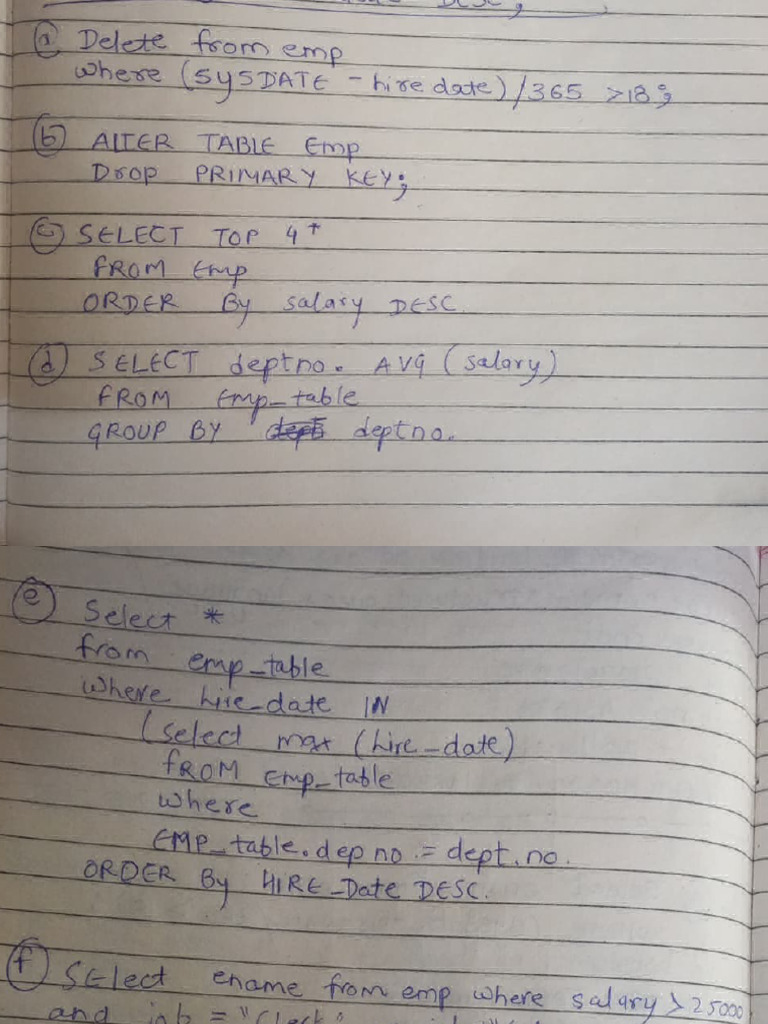 DESC;
(a) Delete from emp
where (SYSDATE - hire date) / 365 >18;
(b) AlTER TABLE Emp
Drop PRIMARY KEY;
(c) SELECT TOP 4 *
FROM Emp
ORDER By salary DESC
(d) SELECT deptno. AVG (salary)
FROM Emp_table
GROUP BY deptno.
(e) Select *
from emp_table
where hire_date IN
(select max (hire_date)
FROM Emp_table
where
EMP_table.dep no = dept.no.
ORDER By HIRE_Date DESC.
(f) SElect ename from emp where salary > 25000
and job = "Clerk"